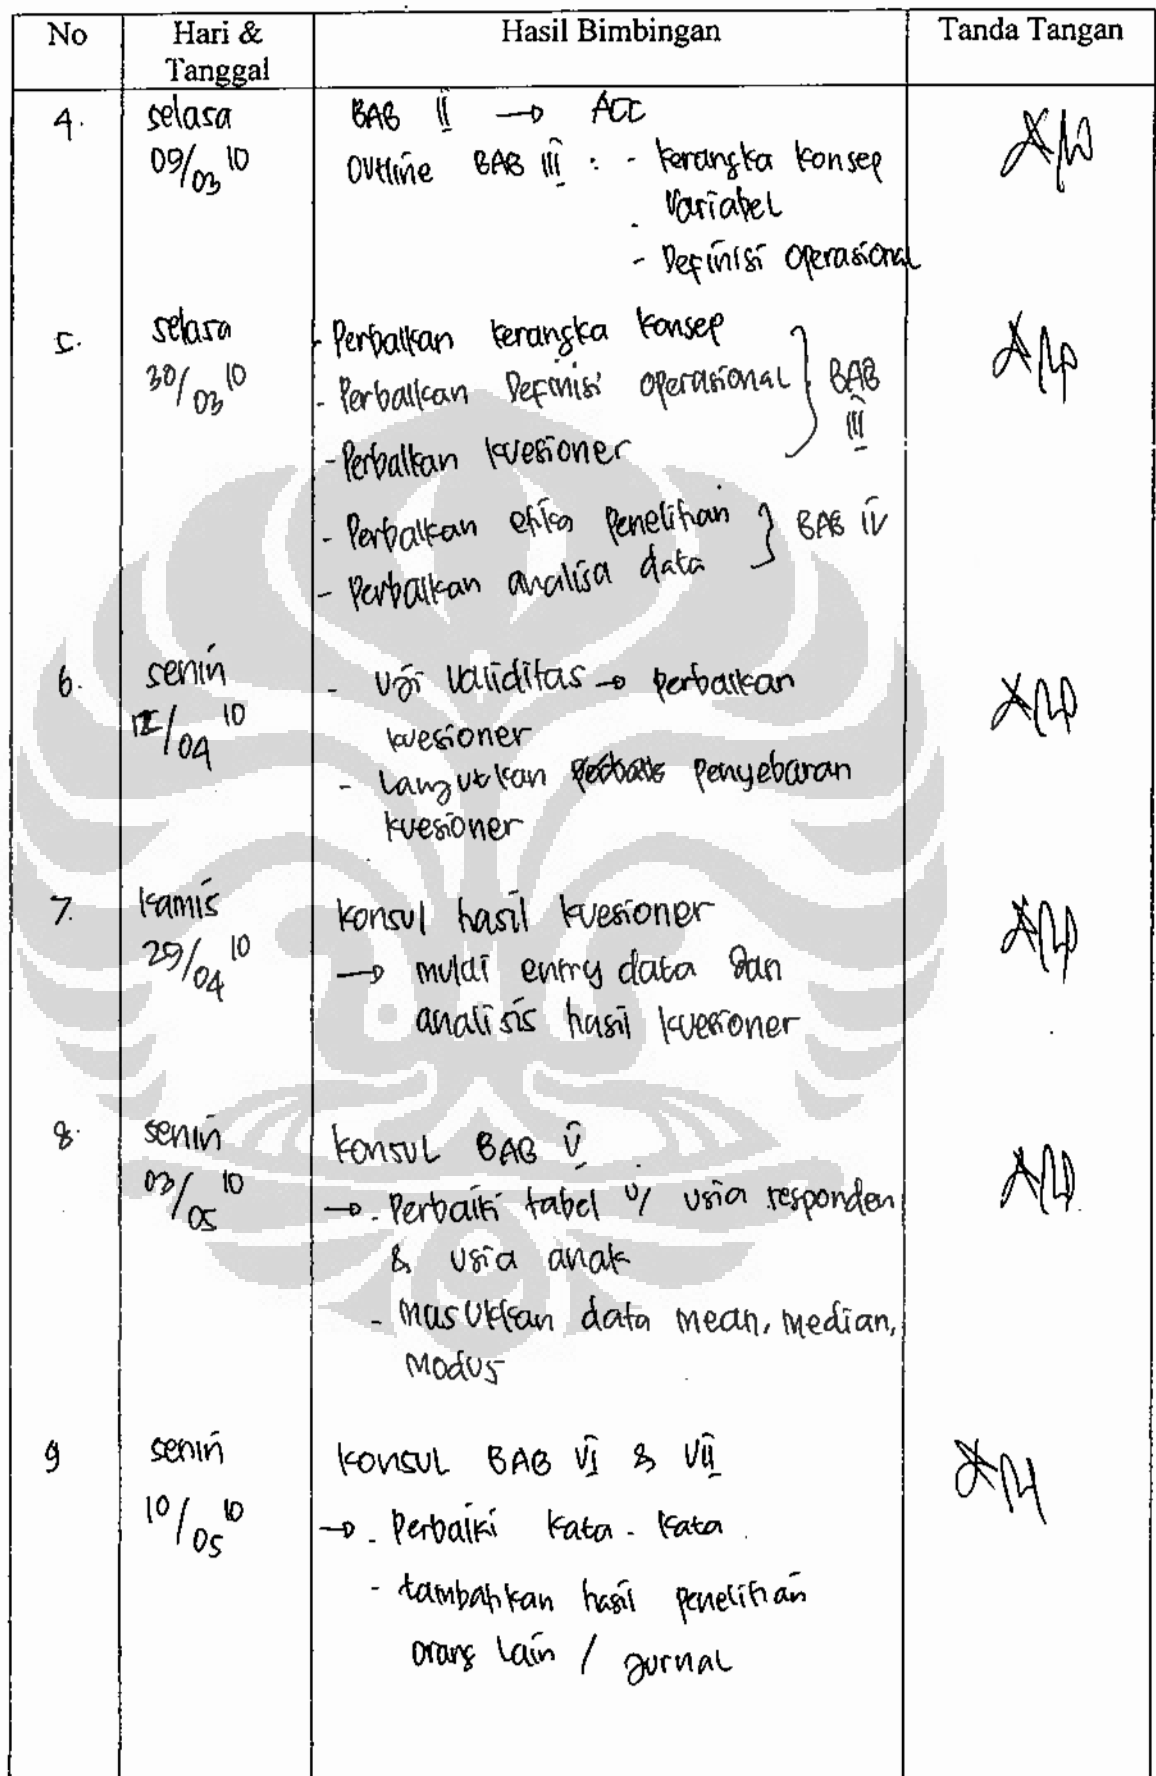 No Hari & Tanggal Hasil Bimbingan Tanda Tangan
4. selasa BAB II → ACC
09/03 10 Outline BAB III : - kerangka konsep
- Variabel
- Definisi Operasional
5. selasa - Perbaikan kerangka konsep
30/03 10 - Perbaikan Definisi Operasional } BAB III
- Perbaikan kuesioner
- Perbaikan etika Penelitian } BAB IV
- Perbaikan analisa data
6. senin - Uji Validitas → perbaikan
12/04 10 kuesioner
- Lanjutkan penyebaran
kuesioner
7. Kamis Konsul hasil kuesioner
29/04 10 → mulai entry data dan
analisis hasil kuesioner
8. senin Konsul BAB V
03/05 10 → - Perbaiki tabel u/ usia responden
& usia anak
- Masukkan data mean, median,
modus
9 senin Konsul BAB VI & VII
10/05 10 → - Perbaiki kata - kata
- tambahkan hasil penelitian
orang lain / jurnal